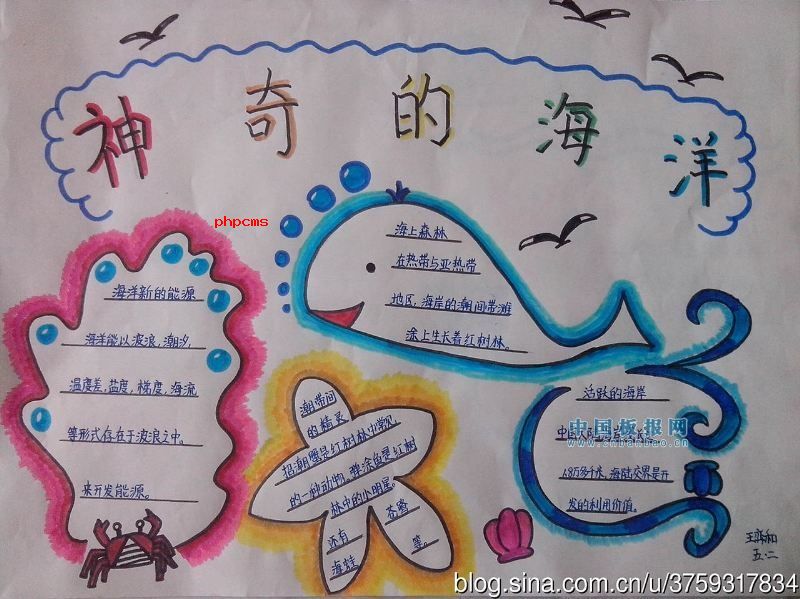 神奇的海洋
phpcms
海上森林
在热带与亚热带
地区，海岸的潮间带滩
涂上生长着红树林。
海洋新的能源
海洋能以波浪，潮汐
温度差，盐度，梯度，海流
等形式存在于波浪之中。
来开发能源。
潮带间
的精灵
招潮蟹是红树林中常见
的一种动物，弹涂鱼是红树
林中的小明星。
还有
海蛙
苍鹭
等。
活跃的海岸
中国板报网
www.banbao.cn
1.8万多千米，海陆交界是开
发的利用价值。
五.二
blog.sina.com.cn/u/3759317834